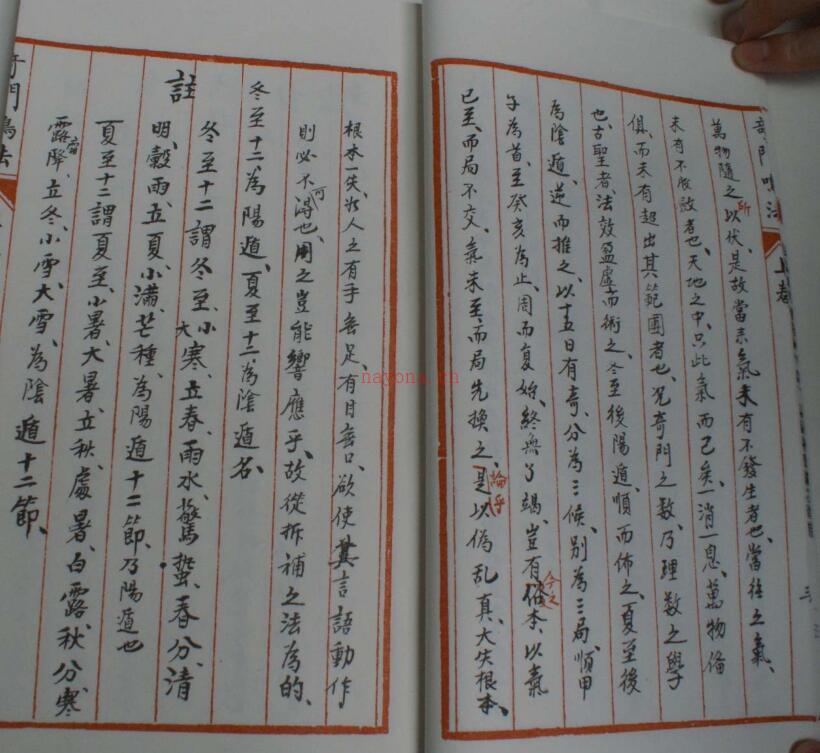 奇門鳴法 上卷
萬物隨之以伏、是故當來氣未有不發生者也、當往之氣、
所
未有不收斂者也、天地之中、只此氣而已矣、一消一息、萬物俻
俱、而未有超出其範圍者也、况奇門之数、乃理数之學
也、古聖者、法效盈虛而術之、冬至後陽遁、順而佈之、夏至後
為陰遁、逆而推之、以十五日有奇、分為三候、别為三局、順甲
子為首、至癸亥為止、周而复始、終無了竭、豈有俗本、以氣
今之
已至、而局不交、氣未至、而局先換之、是以偽乱真、大失根本、
論乎
三
根本一失、狀人之有手無足有目無口、欲使其言語動作
則必不得也、用之豈能響應乎、故從拆補之法為的、
可
冬至十二為陽遁、夏至十二為陰遁名、
註
冬至十二謂冬至、小寒、立春、雨水、驚蟄、春分、清
大
明、穀雨、立夏、小滿、芒種、為陽遁十二節、乃陽遁也
夏至十二謂夏至、小暑、大暑、立秋、處暑、白露、秋分、寒
露降、立冬、小雪、大雪、為陰遁十二節、
霜
奇門鳴法
nayona.cn